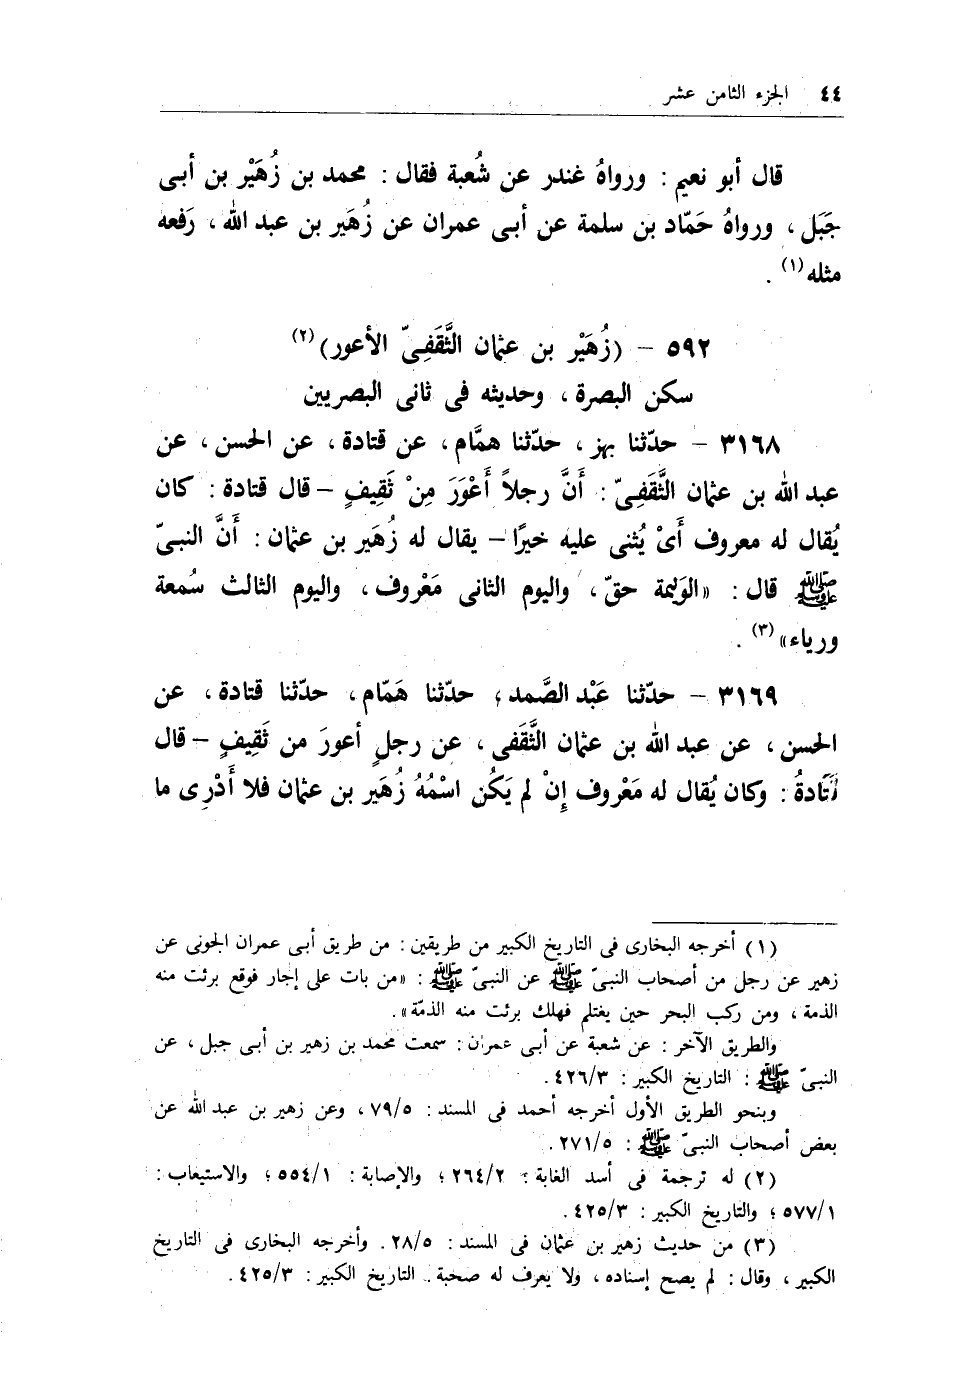 ٤٤ الجزء الثامن عشر
قال أبو نعيم : ورواهُ غندر عن شُعبة فقال : محمد بن زُهَيْر بن أبى
جَبَل ، ورواهُ حَمّاد بن سلمة عن أبى عمران عن زُهَير بن عبد الله ، رَفعه
مثله (١) .
٥٩٢ - (زُهَيْر بن عثمان الثَّقَفِىّ الأعور) (٢)
سكن البصرة ، وحديثه فى ثانى البصريين
٣١٦٨ - حدّثنا بهز ، حدّثنا همَّام ، عن قتادة ، عن الحسن ، عن
عبد الله بن عثمان الثَّقَفِىّ : أَنَّ رجلاً أَعْوَرَ مِنْ ثَقِيفٍ - قال قتادة : كان
يُقال له معروف أَىْ يُثنى عليه خيرًا - يقال له زُهَير بن عثمان : أَنَّ النبىّ
ﷺ قال : «الوَلِيمة حقّ ، واليوم الثانى مَعْروف ، واليوم الثالث سُمعة
ورياء» (٣) .
٣١٦٩ - حدّثنا عَبْد الصَّمد ، حدّثنا هَمّام ، حدّثنا قتادة ، عن
الحسن ، عن عبد الله بن عثمان الثَّقَفى ، عن رجلٍ أعورَ من ثَقِيفٍ - قال
قَتَادةُ : وكان يُقال له مَعْروف إِنْ لم يَكُن اسْمُهُ زُهَير بن عثمان فلا أَدْرِى ما
(١) أخرجه البخارى فى التاريخ الكبير من طريقين : من طريق أبى عمران الجونى عن
زهير عن رجل من أصحاب النبىّ ﷺ عن النبىّ ﷺ : «من بات على إجار فوقع برئت منه
الذمة ، ومن ركب البحر حين يغتلم فهلك برئت منه الذمّة» .
والطريق الآخر : عن شعبة عن أبى عمران : سمعت محمد بن زهير بن أبى جبل ، عن
النبىّ ﷺ : التاريخ الكبير : ٤٢٦/٣ .
وبنحو الطريق الأول أخرجه أحمد فى المسند : ٧٩/٥ ، وعن زهير بن عبد الله عن
بعض أصحاب النبىّ ﷺ : ٢٧١/٥ .
(٢) له ترجمة فى أسد الغابة : ٢٦٤/٢ ؛ والإصابة : ٥٥٤/١ ؛ والاستيعاب :
٥٧٧/١ ؛ والتاريخ الكبير : ٤٢٥/٣ .
(٣) من حديث زهير بن عثمان فى المسند : ٢٨/٥ . وأخرجه البخارى فى التاريخ
الكبير ، وقال : لم يصح إسناده ، ولا يعرف له صحبة . التاريخ الكبير : ٤٢٥/٣ .